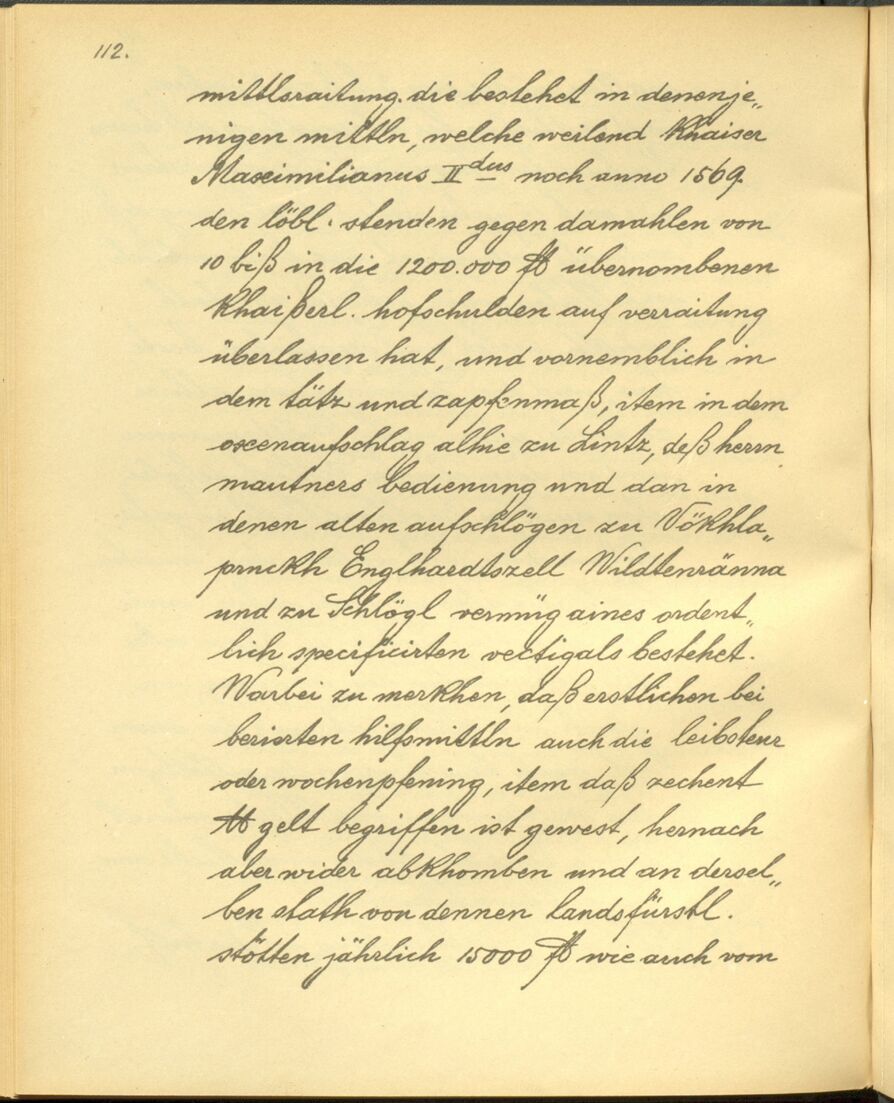 112.
mittlsraitung. die bestehet in denenje„
nigen mittln, welche weilend Khaiser
Maximilianus II dus noch anno 1569.
den löbl. stenden gegen damahlen von
10 biß in die 1200.000 ℔ übernombenen
Khaißerl. hofschulden auf verraitung
überlassen hat, und vornemblich in
dem tätz und zapfenmaß, item in dem
oxenaufschlag alhie zu Lintz, deß herrn
mautners bedienung und dan in
denen alten aufschlögen zu Vökhla„
prukh Englhardtszell Wildtenränna
und zu Schlögl vermüg aines ordent„
lich specificirten vectigals bestehet.
Warbei zu merkhen, daß erstlichen bei
berierten hilfsmittln auch die leibsteur
oder wochenpfening, item daß zechent
℔ gelt begriffen ist gewest, hernach
aber wider abkhomben und an dersel„
ben stath von dennen landsfürstl.
stötten jährlich 15000 ℔ wie auch vom